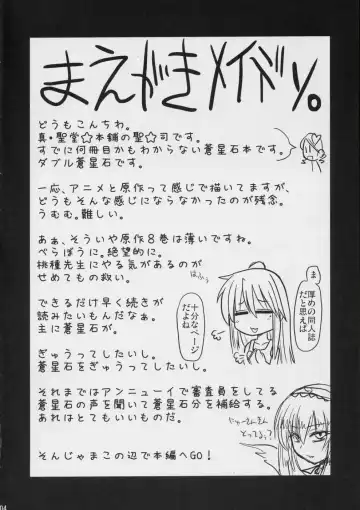 まえがきメイドり。
どうもこんちわ。
真・聖堂☆本舗の聖☆司です。
すでに何冊目かもわからない蒼星石本です。
ダブル蒼星石です。
一応、アニメと原作って感じで描いてますが、
どうもそんな感じにならなかったのが残念。
うむむ。難しい。
あぁ、そういや原作8巻は薄いですね。
べらぼうに。絶望的に。
桃種先生にやる気があるのが
せめてもの救い。
できるだけ早く続きが
読みたいもんだなぁ。
主に蒼星石が。
ぎゅうってしたいし。
蒼星石をぎゅうってしたいし。
それまではアンニューイで審査員をしてる
蒼星石の声を聞いて蒼星石分を補給する。
あれはとてもいいものだ。
そんじゃまこの辺で本編へGO!
ま、
厚めの同人誌
だと思えば
十分なページ
だよね
04